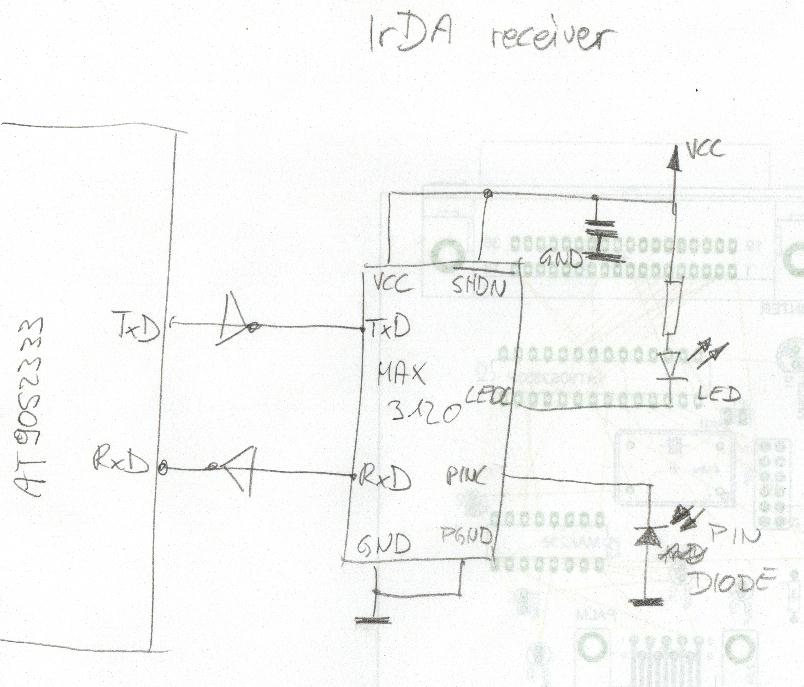 IrDA receiver
VCC
GND
VCC
SHDN
TxD
TxD
MAX
3120
LEDC
LED
AT90S2333
RxD
RxD
PINC
GND
PGND
PIN
DIODE